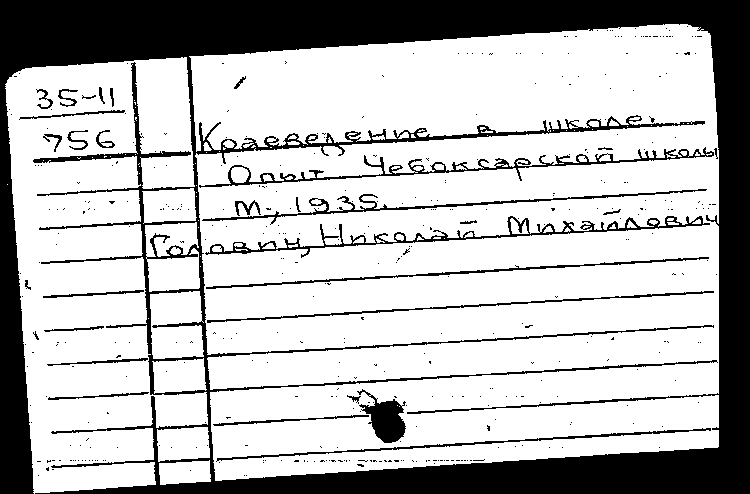 35-11
756
Краеведение в школе.
Опыт Чебоксарской школы
М., 1935.
Головин, Николай Михайлович